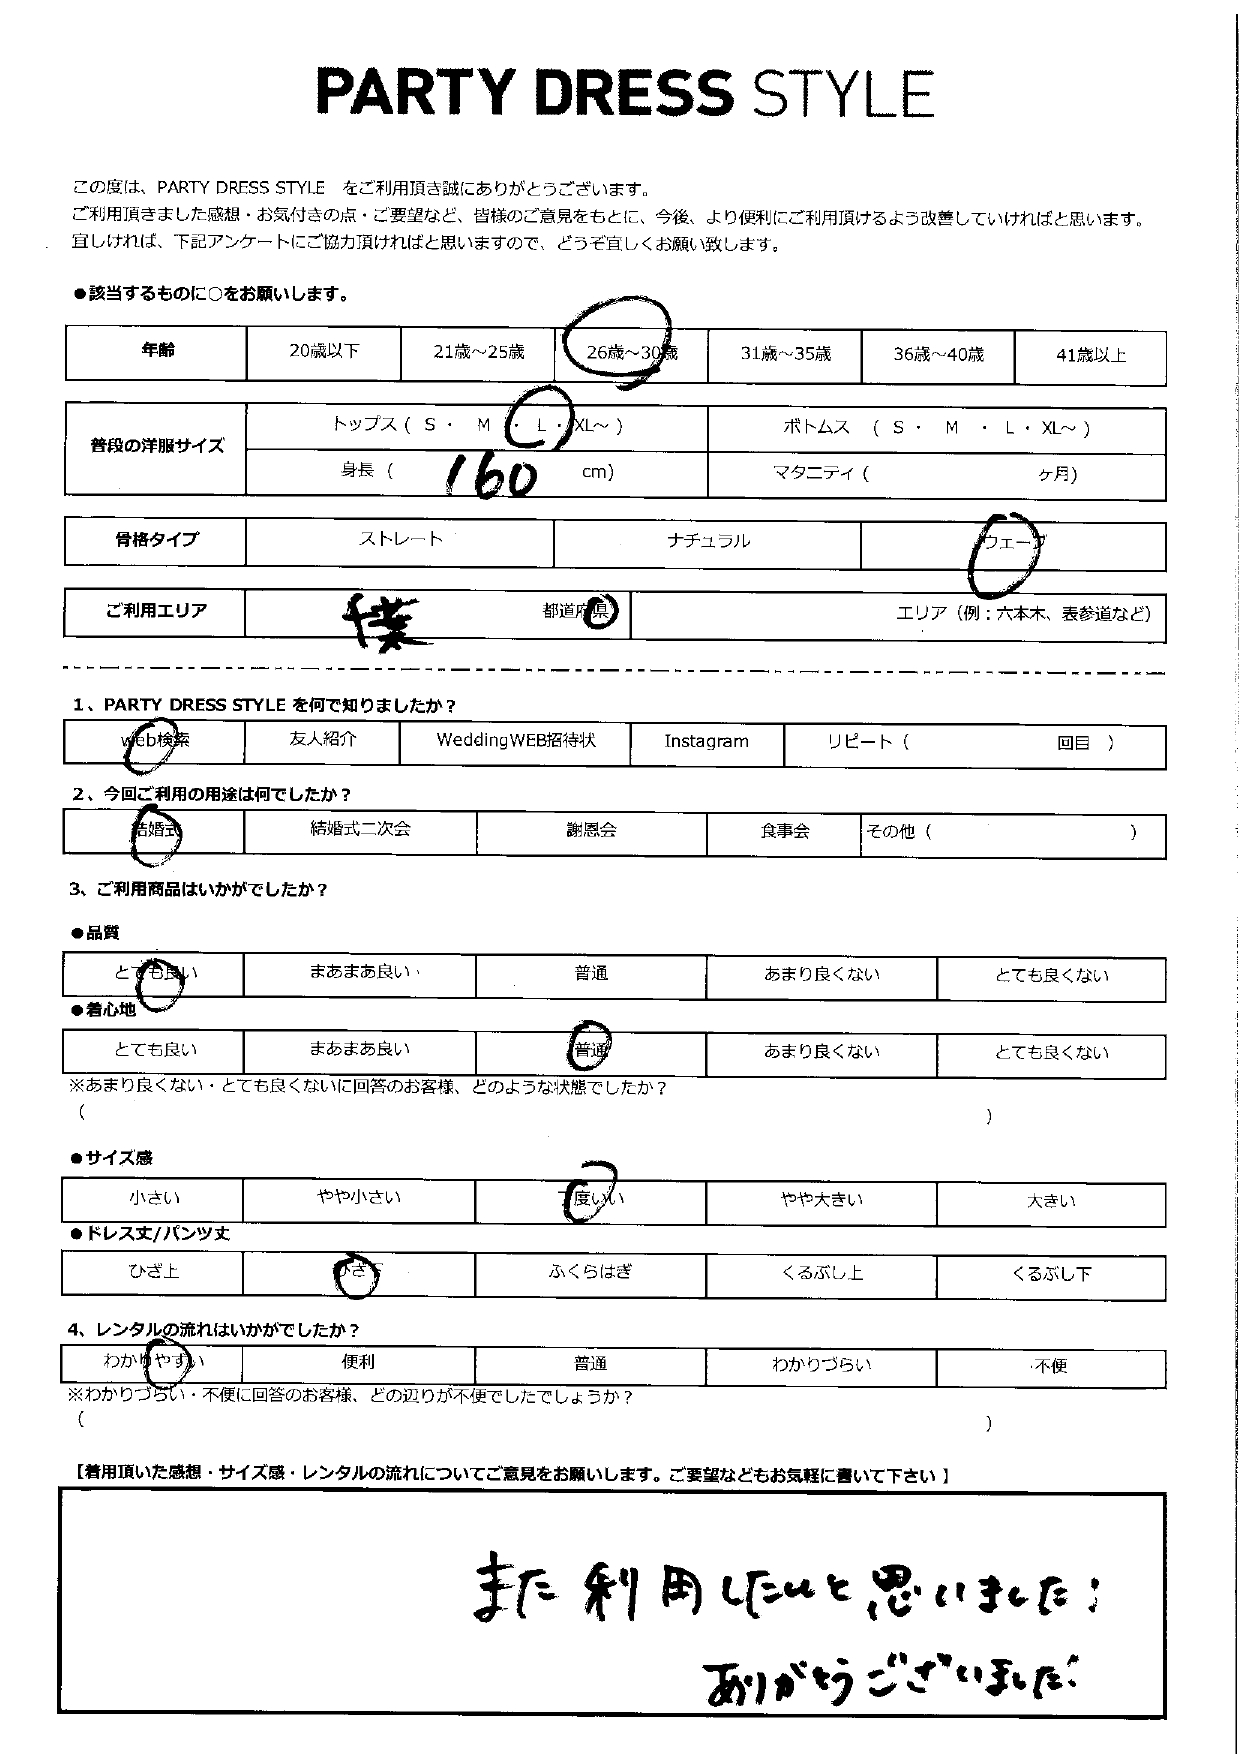 PARTY DRESS STYLE
この度は、PARTY DRESS STYLE をご利用頂き誠にありがとうございます。
ご利用頂きました感想・お気付きの点・ご要望など、皆様のご意見をもとに、今後、より便利にご利用頂けるよう改善していければと思います。
宜しければ、下記アンケートにご協力頂ければと思いますので、どうぞ宜しくお願い致します。
●該当するものに○をお願いします。
年齢 20歳以下 21歳～25歳 26歳～30歳 31歳～35歳 36歳～40歳 41歳以上
普段の洋服サイズ トップス ( S ・ M ・ L ・ XL～ ) ボトムス ( S ・ M ・ L ・ XL～ )
身長 ( 160 cm) マタニティ ( ヶ月)
骨格タイプ ストレート ナチュラル ウェーブ
ご利用エリア 千葉 都道府県 エリア（例：六本木、表参道など）
1、PARTY DRESS STYLE を何で知りましたか？
web検索 友人紹介 WeddingWEB招待状 Instagram リピート ( 回目 )
2、今回ご利用の用途は何でしたか？
結婚式 結婚式二次会 謝恩会 食事会 その他 ( )
3、ご利用商品はいかがでしたか？
●品質
とても良い まあまあ良い 普通 あまり良くない とても良くない
●着心地
とても良い まあまあ良い 普通 あまり良くない とても良くない
※あまり良くない・とても良くないに回答のお客様、どのような状態でしたか？
( )
●サイズ感
小さい やや小さい 丁度いい やや大きい 大きい
●ドレス丈/パンツ丈
ひざ上 ひざ下 ふくらはぎ くるぶし上 くるぶし下
4、レンタルの流れはいかがでしたか？
わかりやすい 便利 普通 わかりづらい 不便
※わかりづらい・不便に回答のお客様、どの辺りが不便でしたでしょうか？
( )
【着用頂いた感想・サイズ感・レンタルの流れについてご意見をお願いします。ご要望などもお気軽に書いて下さい】
また利用したいと思いました！
ありがとうございました！